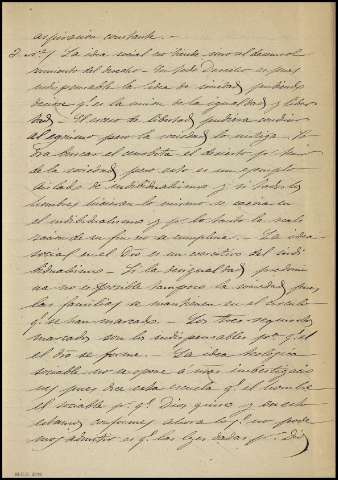 aspiración constante. —
La idea social no tiende sino al desenvol
vimiento del derecho — En todo Derecho es pues
indispensable la idea de sociedad pudiendo
decirse q.e es la union de la igualdad y liber
tad — El exceso de libertad pudiera conducir
al egoismo pero la sociedad lo mitiga —
buscar el cenobita el desierto p.r huir
de la sociedad pero esto es un ejemplo
aislado de individualismo y si todos los
hombres hicieran lo mismo se caeria en
el individualismo y p.r lo tanto la reali
zacion de su fin no se cumpliria. — La idea
social en el Dro es un correctivo del indi
bidualismo — Si la desigualdad predomi
na no es posible tampoco la sociedad pues
las familias se mantienen en el circulo
q.e se han marcado. — Los tres segundos
marcados son los indispensables p.a q.e el
el dro se forme. — La idea teologica
sociable no se opone a mas imbestigacio
nes pues dice esta escuela q.e el hombre
es sociable p.r q.e Dios quiso y en esto
estamos conformes ahora lo q.e no pode
mos admitir es q.e las leyes dadas p.r Dios